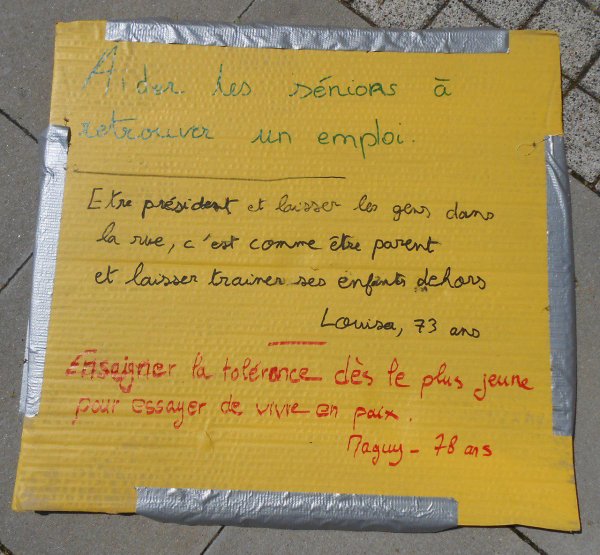 Aider les séniors à
retrouver un emploi.
Etre président et laisser les gens dans
la rue, c'est comme être parent
et laisser trainer ses enfants dehors
Louisa, 73 ans
Enseigner la tolérance dès le plus jeune
pour essayer de vivre en paix.
Maguy - 78 ans